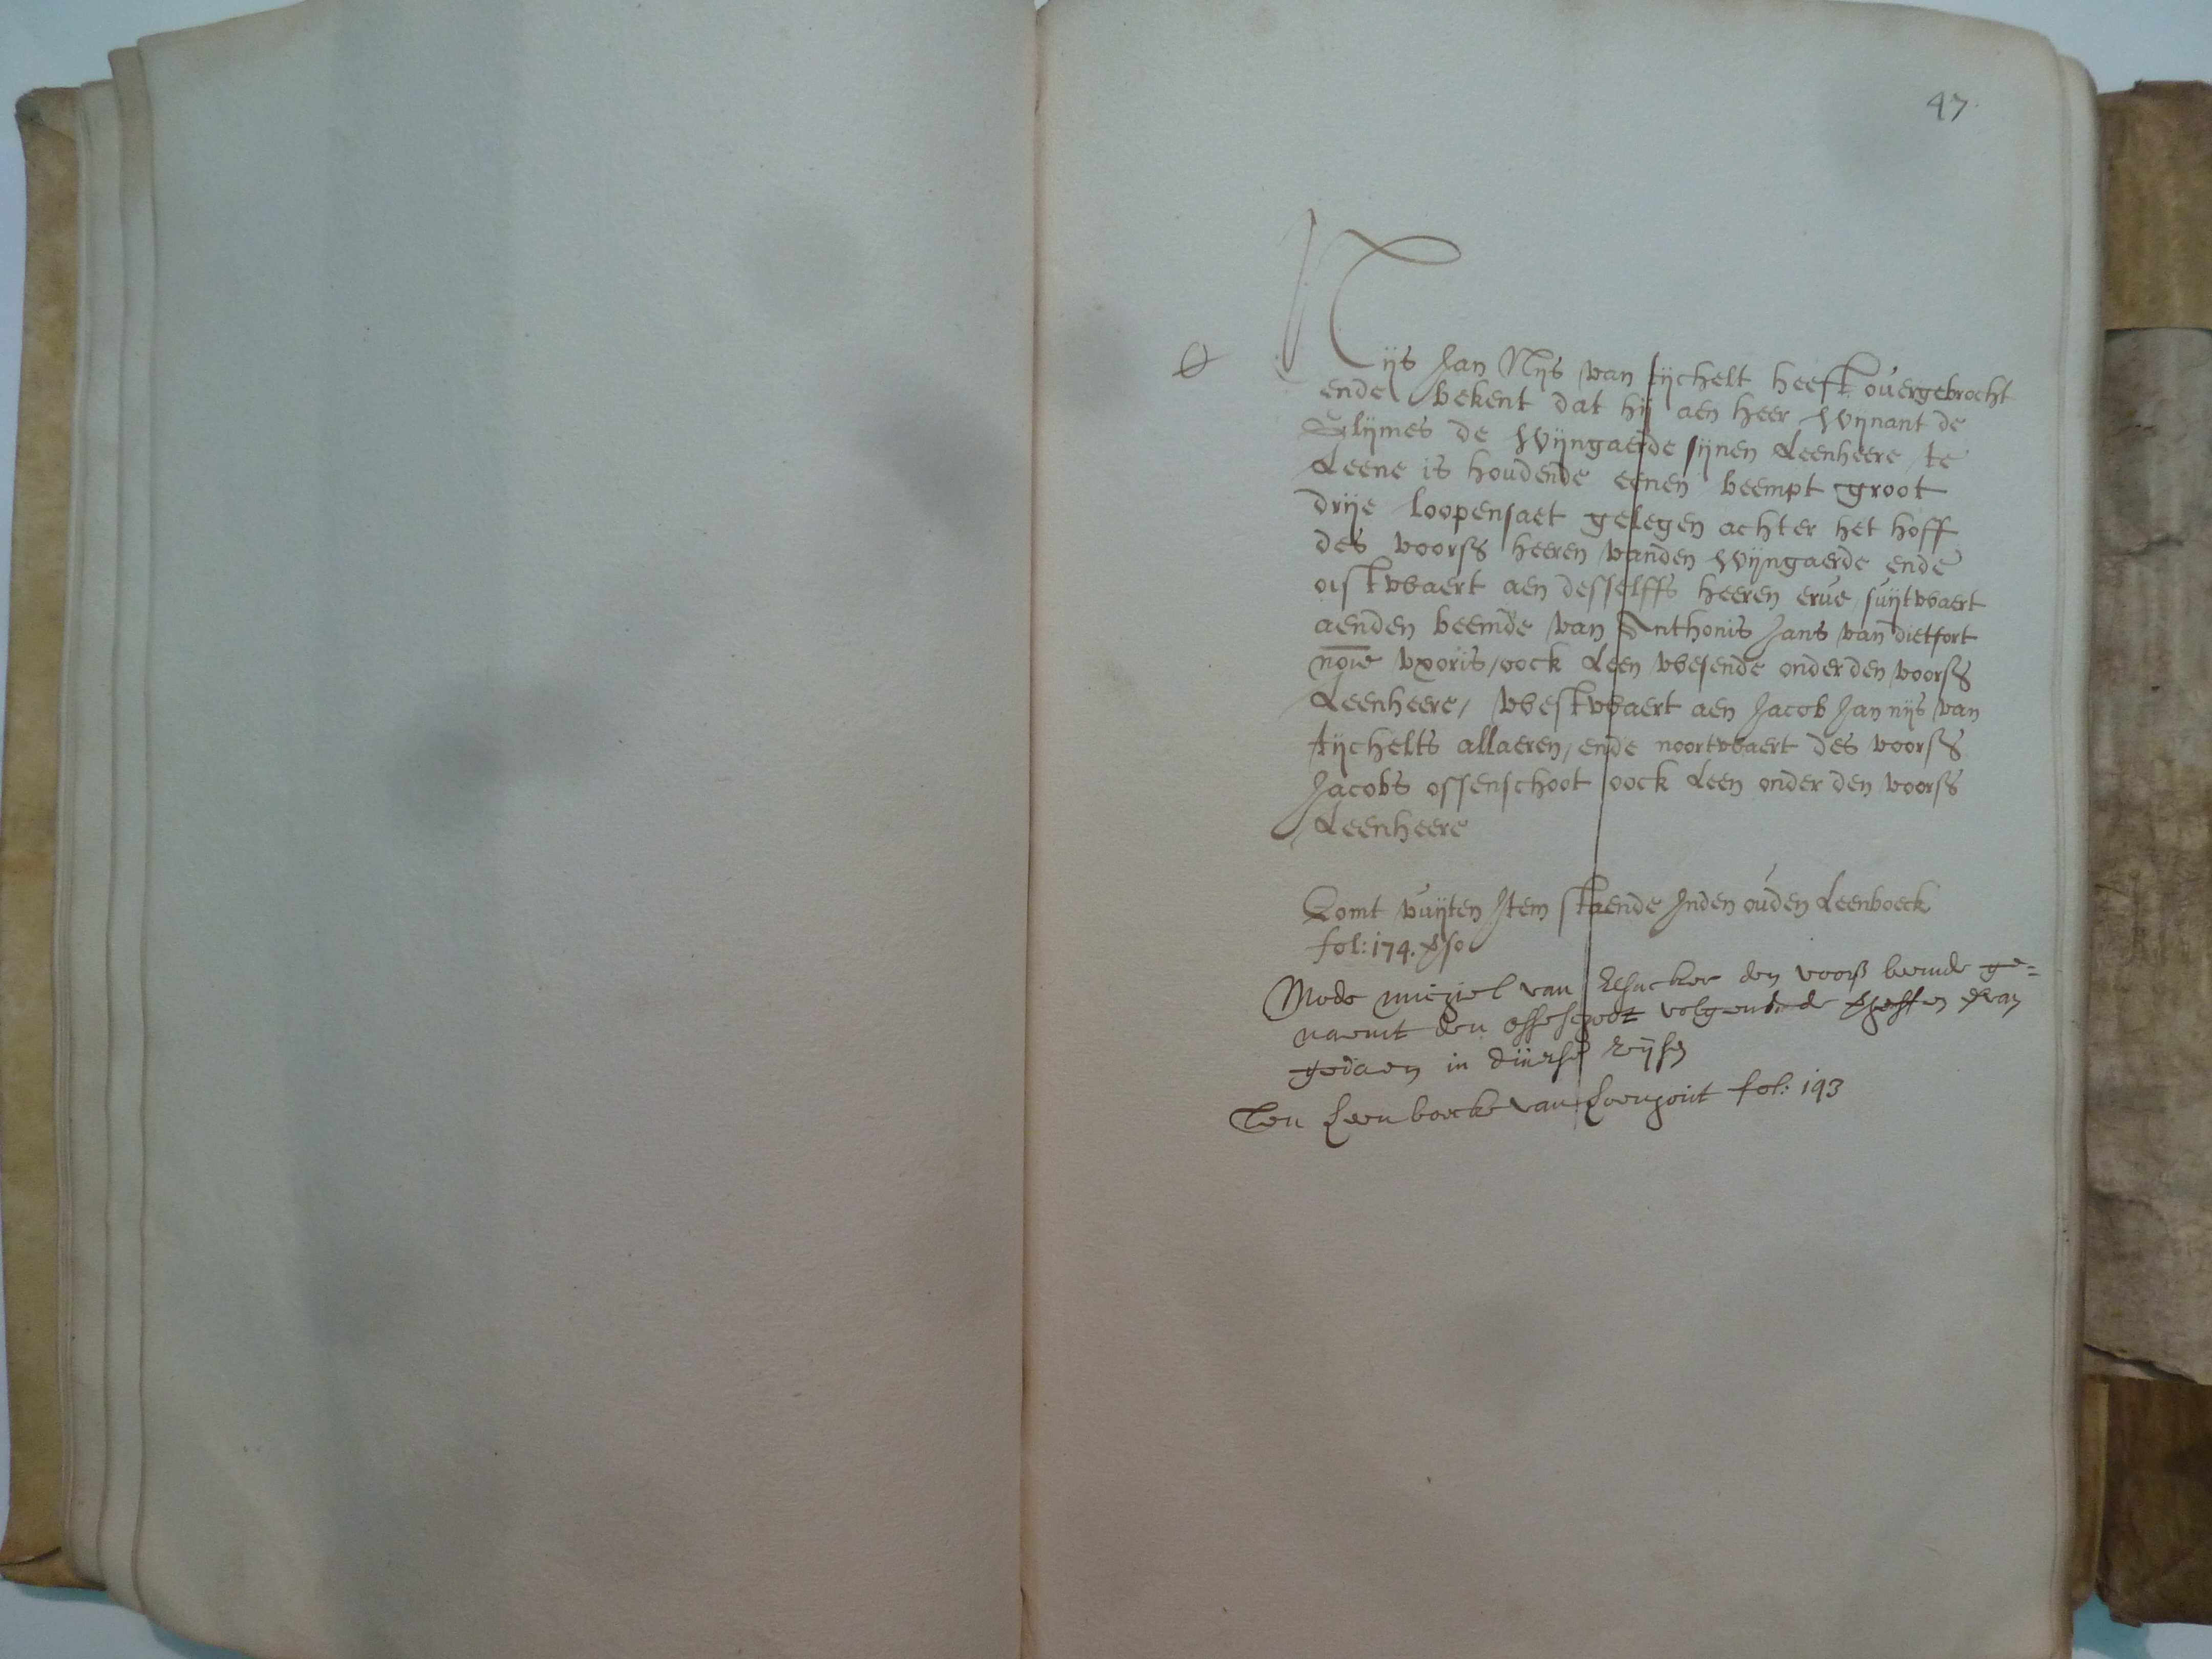 47.
Nijs Jan Nijs van tijchelt heeft ouergebrocht
ende bekent dat hij aen heer Wijnant de
Glijmes de Wijngaerde sijnen Leenheere te
Leene is houdende eenen beempt groot
drije loopensaet gelegen achter het hoff
des voorss heeren vanden Wijngaerde ende
oistwaert aen desselffs heeren erue, suijtwaert
aenden beemde van Anthonis Jans van dietfort
noie vxoris, oock Leen wesende onder den voorss
Leenheere, westwaert aen Jacob Jan nijs van
tijchelts allaeren, ende noortwaert des voorss
Jacobs ossenschoot oock Leen onder den voorss
Leenheere
Comt vuijten Item staende Inden ouden Leenboeck
fol: 174. vso
Modo michiel van den voorss beemde ge=
naemt den ossschoot volgende de
gedaen in diuerse
Den Leenboecke van fol: 193